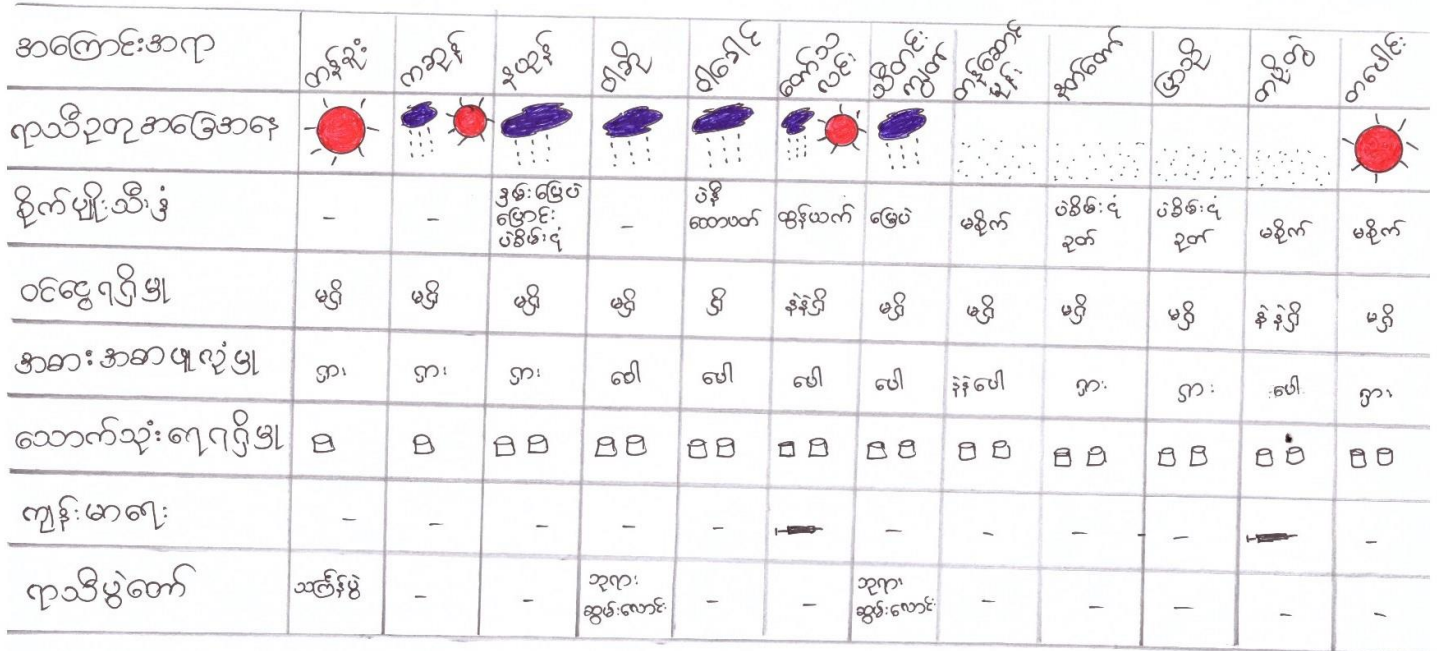 အကြောင်းအရာ တန်ခူး ကဆုန် နယုန် ဝါဆို ဝါခေါင် တော်သလင်း သီတင်းကျွတ် တန်ဆောင်မုန်း နတ်တော် ပြာသို တပို့တွဲ တပေါင်း
ရာသီဥတုအခြေအနေ
စိုက်ပျိုးသီးနှံ - - နှမ်း မြေပဲ ပြောင်း ပဲစိမ်းငုံ - ပဲနီ ထောပတ် ထွန်ယက် မြေပဲ မစိုက် ပဲစိမ်းငုံ နုတ် ပဲစိမ်းငုံ နုတ် မစိုက် မစိုက်
ဝင်ငွေရရှိမှု မရှိ မရှိ မရှိ မရှိ ရှိ နဲနဲရှိ မရှိ မရှိ မရှိ မရှိ နဲနဲရှိ မရှိ
အစားအစာဖူလုံမှု ရှား ရှား ရှား ပေါ ပေါ ပေါ ပေါ နဲနဲပေါ ရှား ရှား ပေါ ရှား
သောက်သုံးရေရရှိမှု
ကျန်းမာရေး - - - - - - - - - -
ရာသီပွဲတော် သင်္ကြန်ပွဲ - - ဘုရား ဆွမ်းလောင်း - - ဘုရား ဆွမ်းလောင်း - - - - -